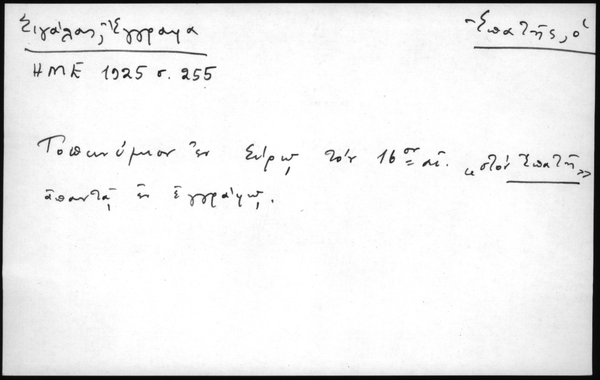 Σιγάλας, Ἔγγραφα
Ἐπατῆς, ὁ
ΗΜΕ 1925 σ. 255
Τοπωνύμιον ἐν Σύρῳ τὸν 16ον αἰ. «στὸν Ἐπατῆ»
ἀπαντᾷ ἐν ἐγγράφῳ.